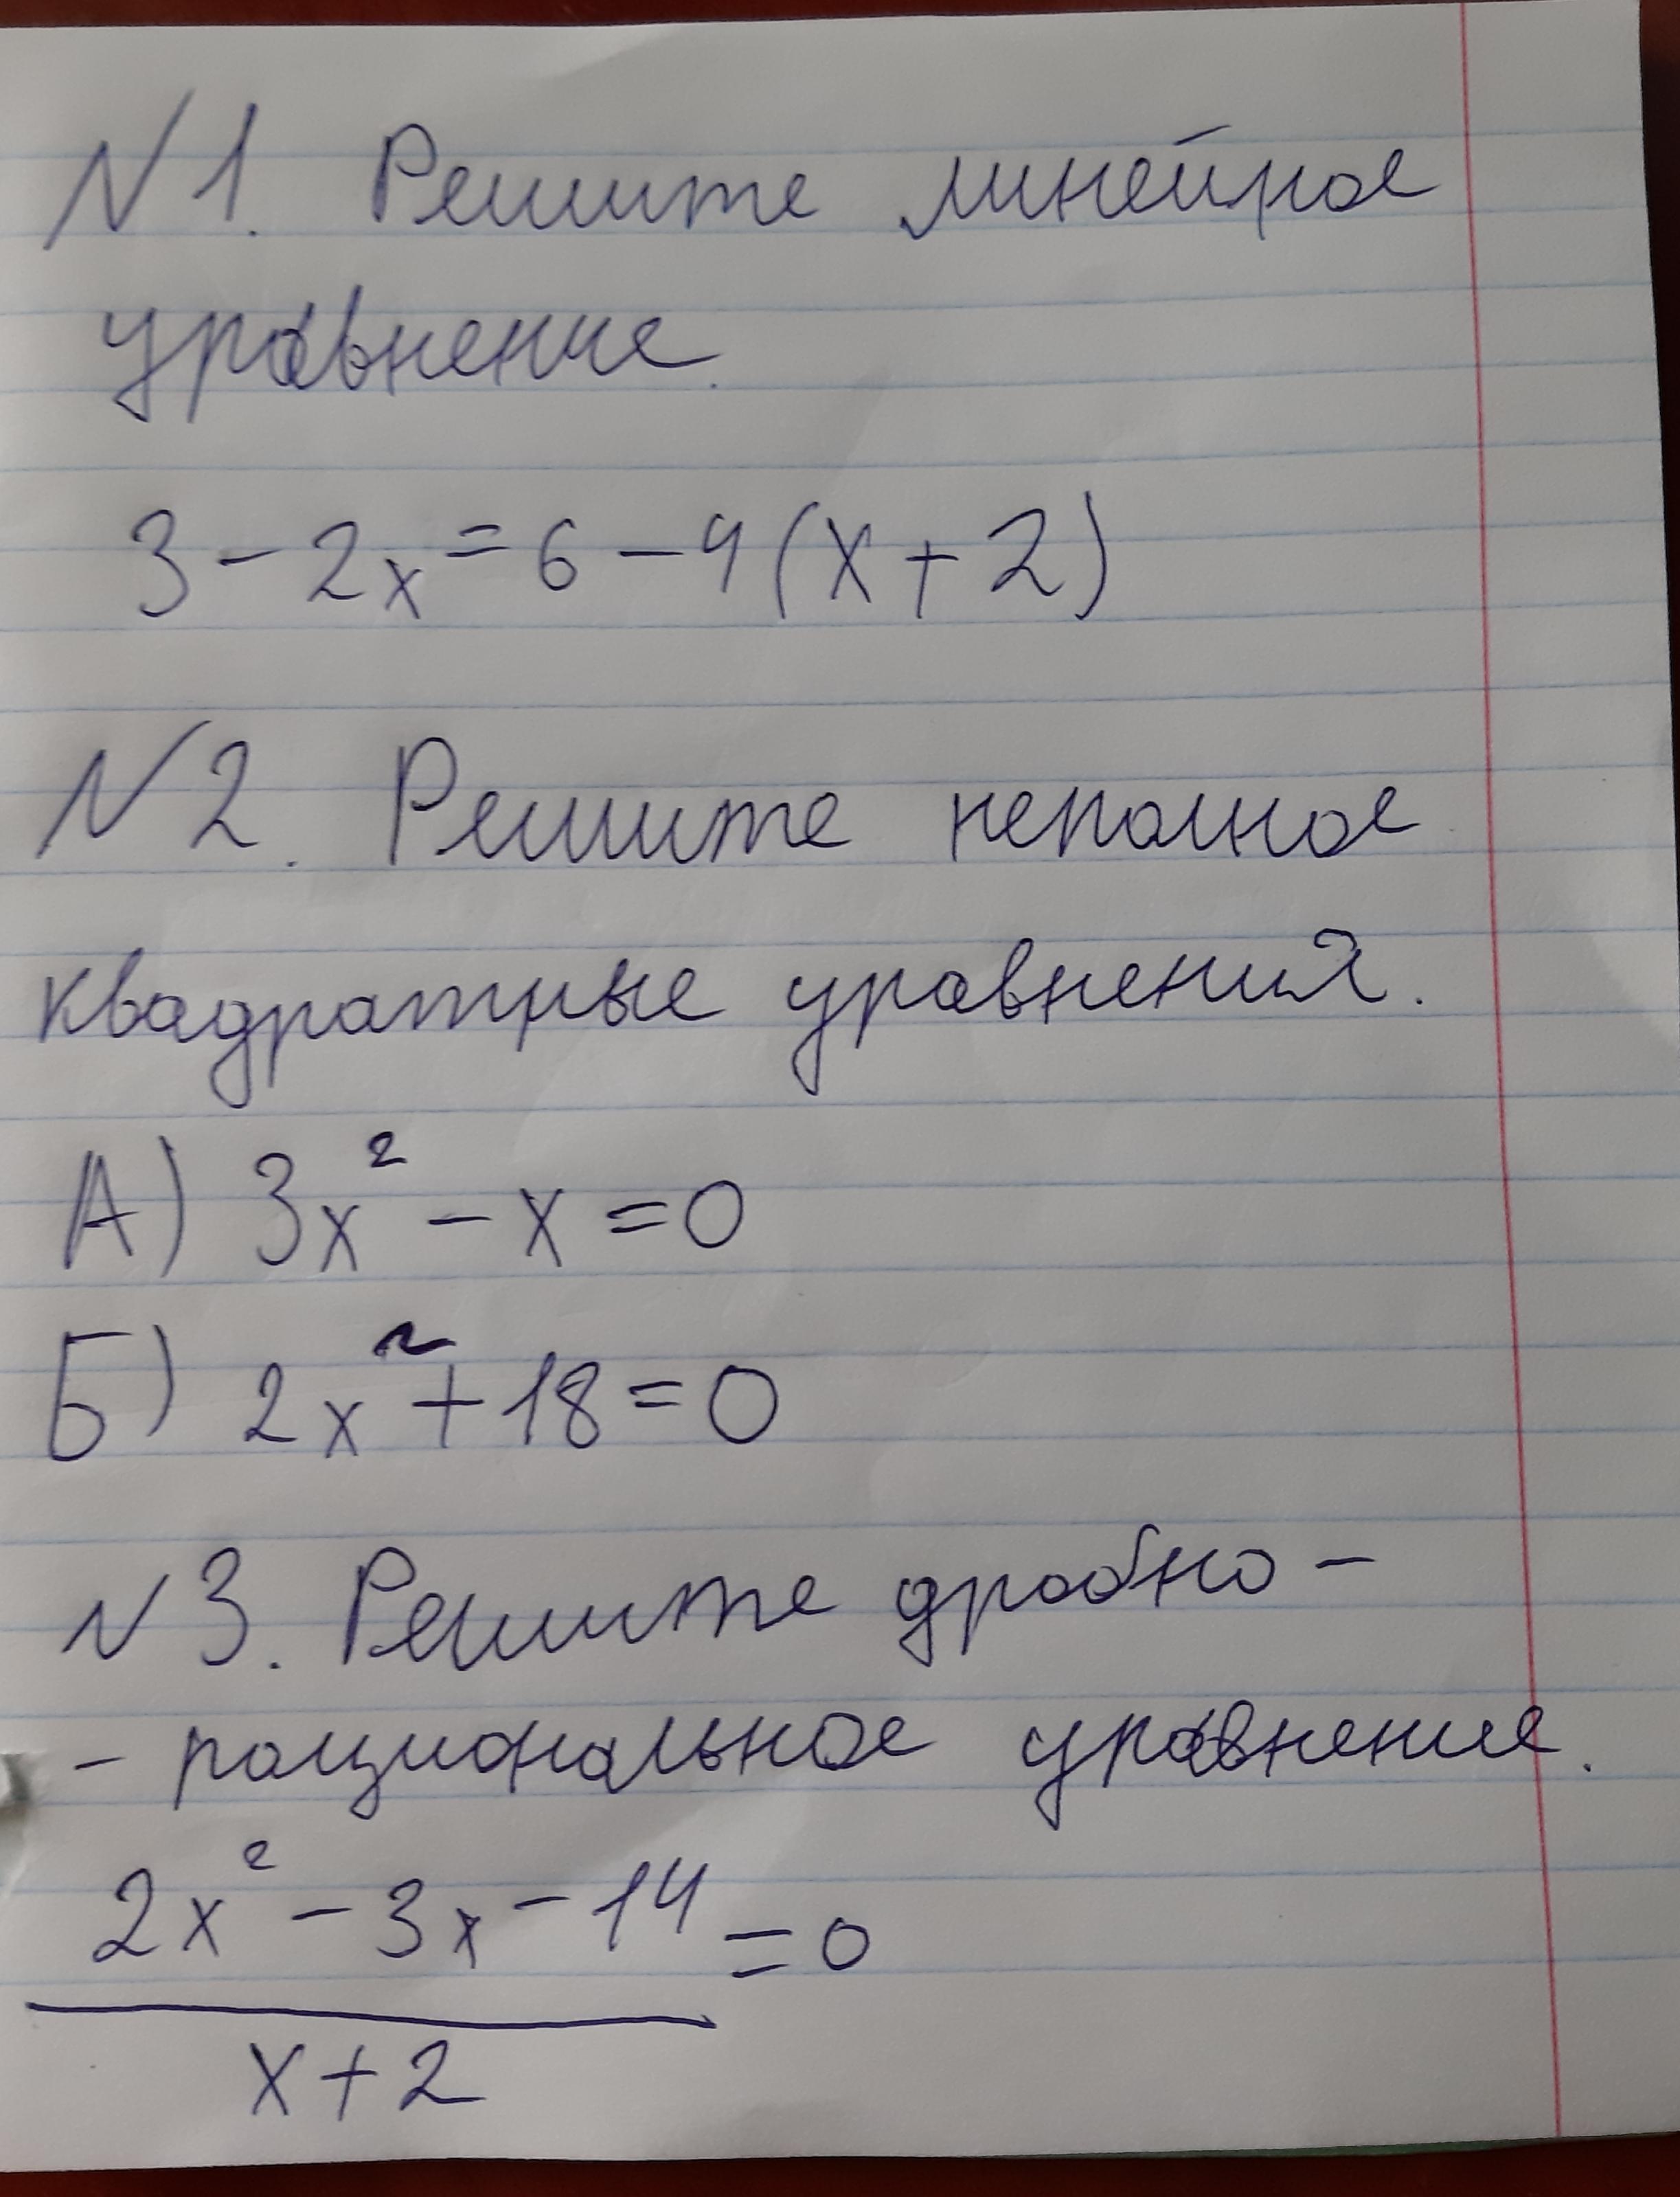 N1. Решите линейное
уравнение.
3 - 2x = 6 - 4(x + 2)
N2. Решите неполное
квадратные уравнения.
А) 3x² - x = 0
Б) 2x² + 18 = 0
N3. Решите дробно -
- рациональное уравнение.
2x² - 3x - 14 = 0
x + 2